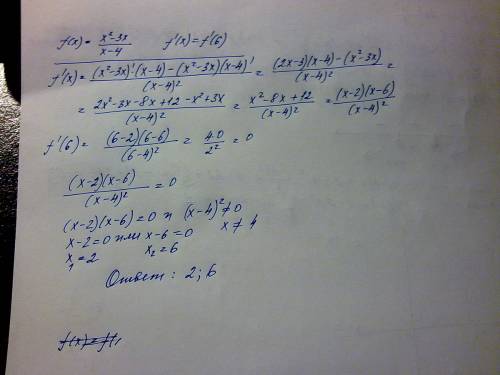 f(x) = (x²-3x)/(x-4)   f'(x) = f'(6)
f'(x) = ((x²-3x)'(x-4) - (x²-3x)(x-4)')/(x-4)² = ((2x-3)(x-4) - (x²-3x))/(x-4)² =
= (2x²-3x-8x+12-x²+3x)/(x-4)² = (x²-8x+12)/(x-4)² = ((x-2)(x-6))/(x-4)²
f'(6) = ((6-2)(6-6))/(6-4)² = 4·0/2² = 0
((x-2)(x-6))/(x-4)² = 0
(x-2)(x-6) = 0 и (x-4)² ≠ 0
x-2=0 или x-6=0   x ≠ 4
x₁ = 2   x₂ = 6
Ответ: 2; 6